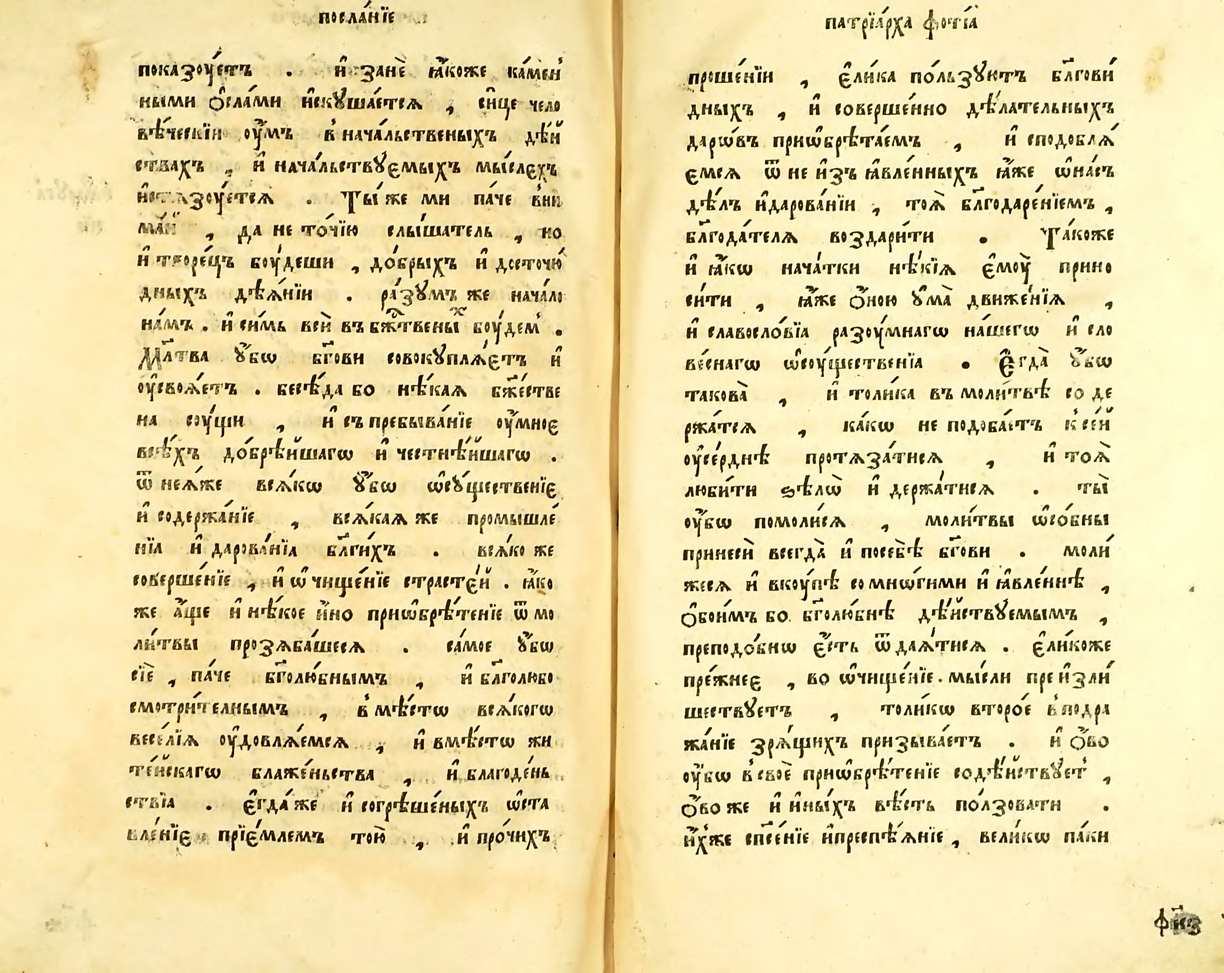 посла́нїе
показꙋ́етъ . и҆ занѐ ꙗ҆́коже ка́мен
ными ѻ҆сла́ми и҆скꙋша́етсѧ , си́це чело
вѣ́ческїи оу҆́мъ в нача́льственыхъ дѣ́й
ствахъ , и҆ нача́льствꙋемыхъ мы́слехъ
и҆стѧзꙋ́етсѧ . Ты́ же ми па́че вни
ма́й , да не то́чїю слы́шатель , но
и҆ творе́цъ бꙋ́деши , до́брыхъ и҆ досточю́
дныхъ дѣѧ́нїи . ра́зꙋмъ же нача́ло
на́мъ . и҆ си́мь всѝ въ бж҃твены́х бꙋ́дем .
Мл҃тва ᲂу҆́бѡ бг҃ови совокꙋплѧ́етъ и҆
оу҆своѧ́етъ . бесѣ́да бо нѣ́каѧ бж҃е́стве
на сꙋ́щи , и҆ съпребыва́нїе оу҆́мное
всѣ́хъ до́брѣйшагѡ и҆ честнѣ́йшагѡ .
ѿ неѧ́же всѧ́кѡ ᲂу҆́бѡ ѡ҆сꙋ́щественїе
и҆ содержа́нїе , всѧ́каѧ же промышле́
нїѧ и҆ дарова́нїѧ бл҃ги́хъ . всѧ́ко же
соверше́нїе , и҆ ѡ҆чище́нїе страсте́й . ꙗ҆́ко
же а҆́ще и҆ нѣ́кое и҆́но приѡбрѣ́тенїе ѿ мо
ли́твы прозѧба́шесѧ . са́мое ᲂу҆́бѡ
сїѐ , па́че бг҃олю́бнымъ , и҆ бл҃голюбо
смотри́телнымъ , в мѣ́стѡ всѧ́когѡ
весе́лїѧ оу҆довлѧ́емсѧ , и҆ вмѣ́стѡ жи
те́йскагѡ блаже́ньства , и҆ благоде́нь
ствїа . є҆гда́ же и҆ согрѣше́ныхъ ѡ҆ста
вле́нїе прїе́млемъ то́ю , и҆ про́чихъ
патрїа́рха фѡ́тїа
проше́нїи , є҆ли́ка по́льзꙋютъ бл҃гови́
дныхъ , и҆ соверше́нно дѣ́лательныхъ
даро́въ приѡбрѣта́емъ , и҆ сподоблѧ́
емсѧ ѿ не и҆зъ ꙗ҆вле́нныхъ ꙗ҆́же ѡ҆ на́съ
дѣ́лъ и҆ дарова́нїи , тоѧ̀ бл҃годаре́нїемъ ,
бл҃года́телѧ воздари́ти . Та́коже
и҆ ꙗ҆́кѡ нача́тки нѣ́кїѧ є҆мꙋ̀ прино
си́ти , ꙗ҆́же ѻ҆́ною ᲂума̀ движе́нїѧ ,
и҆ славосло́вїа разꙋ́мнагѡ на́шегѡ и҆ сло
ве́снагѡ ѡ҆сꙋ́щественїа . Є҆гда̀ ᲂу҆́бѡ
такова̀ , и҆ толи́ка въ моли́твѣ со де
ржа́тсѧ , ка́кѡ не подоба́етъ к се́й
оу҆се́рднѣ протѧза́тисѧ , и҆ тоѧ̀
люби́ти ѕѣлѡ̀ и҆ держа́тисѧ . ты̀
оу҆́бѡ помоли́сѧ , моли́твы ѡ҆со́бны
принесѝ всегда̀ и҆ посебѣ̀ бг҃ови . моли́
жесѧ и҆ вкꙋ́пѣ со мнѡ́гими и҆ ꙗ҆вле́ннѣ ,
ѻ҆бои́мъ бо бг҃олю́бнѣ дѣ́йствꙋемымъ ,
преподо́бнѡ є҆́сть ѿдаѧ́тисѧ . є҆ли́коже
пре́жнее , во ѡ҆чище́нїе мы́сли пре и҆зли́
шествꙋетъ , толи́кѡ второ́е в подра
жа́нїе зрѧ́щихъ призыва́етъ . и҆ ѻ҆́во
оу҆́бѡ в своѐ приѡбрѣ́тенїе содѣ́йствꙋет ,
ѻ҆́во же и҆ и҆ны́хъ вѣ́сть по́лзовати .
и҆́хже сп҃се́нїе и҆ преспѣѧ́нїе , вели́кѡ па́ки